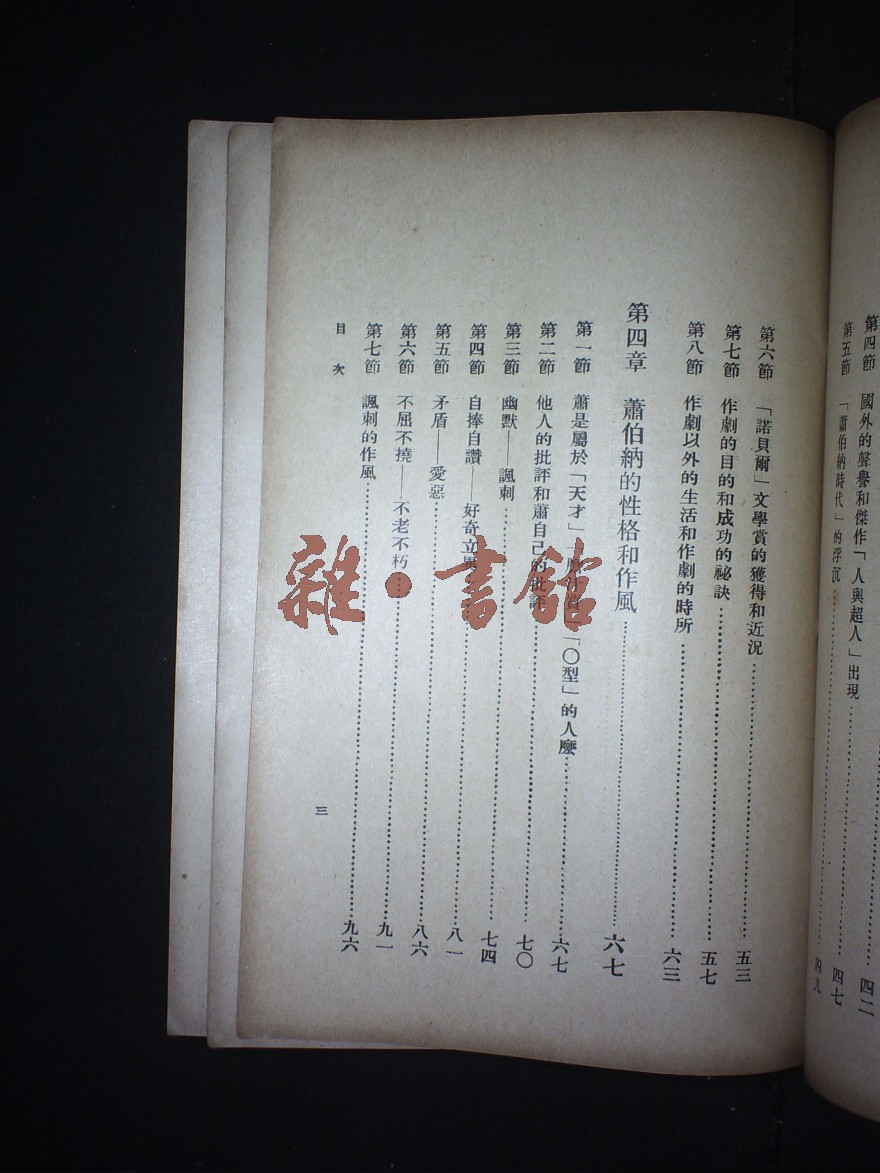 第四節 國外的聲譽和傑作「人與超人」出現……四二
第五節 「蕭伯納時代」的浮沉……四七
四九
第六節 「諾貝爾」文學賞的獲得和近況……五三
第七節 作劇的目的和成功的祕訣……五七
第八節 作劇以外的生活和作劇的時所……六三
第四章 蕭伯納的性格和作風……六七
第一節 蕭是屬於「天才」「〇型」的人麼……六七
第二節 他人的批評和蕭自己的批評……七〇
第三節 幽默——諷刺……七四
第四節 自捧自讚——好奇立異……八一
第五節 矛盾——愛惡……八六
第六節 不屈不撓——不老不朽……九一
第七節 諷刺的作風……九六
目次
三
雜·書館